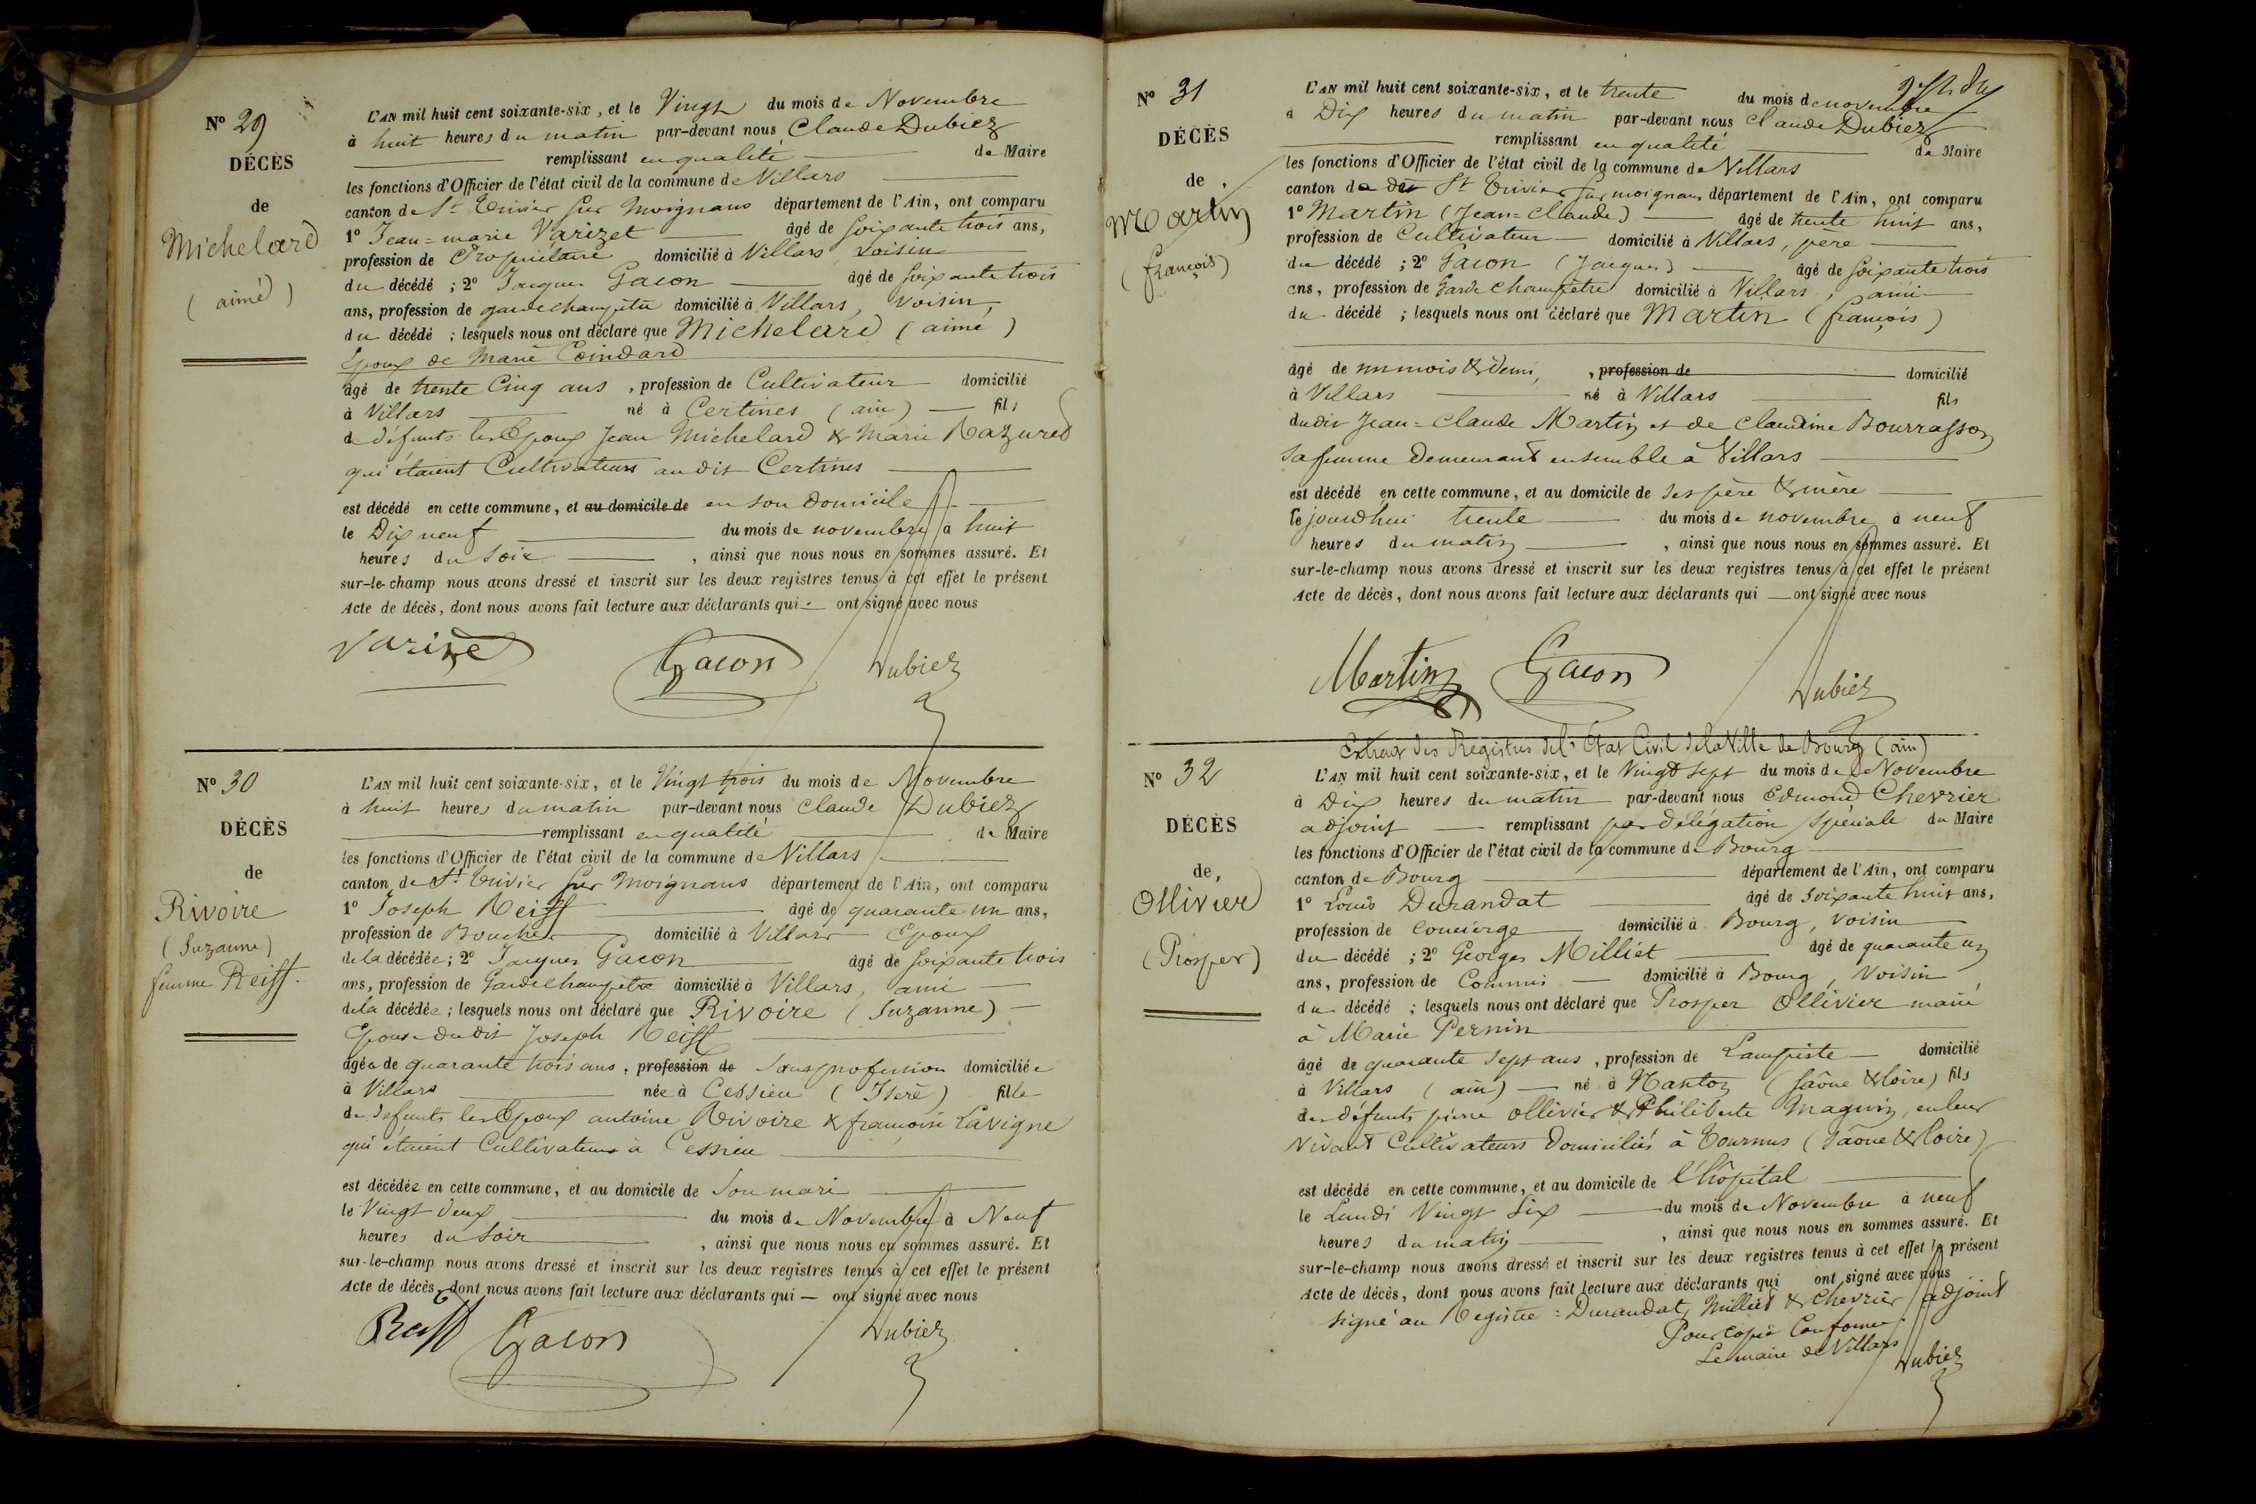 N° 29
DÉCÈS
de
Michelard
(aimé)
L'AN mil huit cent soixante-six, et le Vingt du mois de Novembre
à huit heures du matin par-devant nous Claude Dubiez
remplissant en qualité de Maire
les fonctions d'Officier de l'état civil de la commune de Villars
canton de St Trivier sur Moignans département de l'Ain, ont comparu
1° Jean-marie Varizet âgé de soixante trois ans,
profession de Propriétaire domicilié à Villars voisin
du décédé ; 2° Jacques Gacon âgé de soixante trois
ans, profession de garde champêtre domicilié à Villars, voisin,
du décédé ; lesquels nous ont déclaré que Michelard (aimé)
Epoux de Marie Coindard
âgé de trente cinq ans, profession de Cultivateur domicilié
à Villars né à Certines (ain) fils
de défunts les Epoux Jean Michelard & Marie Razured
qui étaient Cultivateurs audit Certines
est décédé en cette commune, et au domicile de en son domicile
le Dix neuf du mois de novembre à huit
heures du soir, ainsi que nous nous en sommes assuré. Et
sur-le-champ nous avons dressé et inscrit sur les deux registres tenus à cet effet le présent
Acte de décès, dont nous avons fait lecture aux déclarants qui ont signé avec nous
Varizet Gacon Dubiez
N° 30
DÉCÈS
de
Rivoire
(Suzanne)
femme Reiff.
L'AN mil huit cent soixante-six, et le Vingt trois du mois de Novembre
à huit heures du matin par-devant nous Claude Dubiez
remplissant en qualité de Maire
les fonctions d'Officier de l'état civil de la commune de Villars
canton de St Trivier sur Moignans département de l'Ain, ont comparu
1° Joseph Reiff âgé de quarante un ans,
profession de Boucher domicilié à Villars Epoux
de la décédée ; 2° Jacques Gacon âgé de soixante trois
ans, profession de Garde champêtre domicilié à Villars, ami
de la décédée ; lesquels nous ont déclaré que Rivoire (Suzanne)
Epouse dudit Joseph Reiff
âgée de quarante trois ans, profession de sans profession domiciliée
à Villars née à Cessieu (Isère) fille
de défunts les Epoux antoine Rivoire & françoise Lavigne
qui étaient Cultivateurs à Cessieu
est décédée en cette commune, et au domicile de son mari
le Vingt deux du mois de Novembre à Neuf
heures du soir, ainsi que nous nous en sommes assuré. Et
sur-le-champ nous avons dressé et inscrit sur les deux registres tenus à cet effet le présent
Acte de décès, dont nous avons fait lecture aux déclarants qui — ont signé avec nous
Reiff Gacon Dubiez
N° 31
DÉCÈS
de
Martin
(françois)
L'AN mil huit cent soixante-six, et le trente du mois de novembre
à Dix heures du matin par-devant nous Claude Dubiez
remplissant en qualité de Maire
les fonctions d'Officier de l'état civil de la commune de Villars
canton de St Trivier sur moignans département de l'Ain, ont comparu
1° Martin (Jean-Claude) âgé de trente huit ans,
profession de Cultivateur domicilié à Villars, père
du décédé ; 2° Gacon (Jacques) âgé de soixante trois
ans, profession de Garde Champêtre domicilié à Villars, ami
du décédé ; lesquels nous ont déclaré que Martin (françois)
âgé de un mois & demi, profession de domicilié
à Villars né à Villars fils
dudit Jean-Claude Martin et de Claudine Bourrasson
sa femme Demeurant ensemble à Villars
est décédé en cette commune, et au domicile de ses père & mère
le jourd'hui trente du mois de novembre à neuf
heures du matin, ainsi que nous nous en sommes assuré. Et
sur-le-champ nous avons dressé et inscrit sur les deux registres tenus à cet effet le présent
Acte de décès, dont nous avons fait lecture aux déclarants qui — ont signé avec nous
Martin Gacon Dubiez
Extrait des Registres de l'Etat Civil de la Ville de Bourg (ain)
N° 32
DÉCÈS
de
Ollivier
(Prosper)
L'AN mil huit cent soixante-six, et le Vingt sept du mois de Novembre
à Dix heures du matin par-devant nous Edmond Chevrier
adjoint remplissant par délégation spéciale du Maire
les fonctions d'Officier de l'état civil de la commune de Bourg
canton de Bourg département de l'Ain, ont comparu
1° Louis Durandat âgé de soixante huit ans,
profession de concierge domicilié à Bourg, voisin
du décédé ; 2° Georges Milliet âgé de quarante un
ans, profession de Commis domicilié à Bourg, voisin
du décédé ; lesquels nous ont déclaré que Prosper Ollivier marié
à Marie Pernin
âgé de quarante sept ans, profession de Lampiste domicilié
à Villars (ain) né à Nanton (Saône & Loire) fils
des défunts pierre Ollivier & Philiberte Maguin, en leur
vivant Cultivateurs domiciliés à Tournus (Saône & Loire)
est décédé en cette commune, et au domicile de l'hôpital
le Lundi Vingt Six du mois de Novembre à neuf
heures du matin, ainsi que nous nous en sommes assuré. Et
sur-le-champ nous avons dressé et inscrit sur les deux registres tenus à cet effet le présent
Acte de décès, dont nous avons fait lecture aux déclarants qui ont signé avec nous
signé au Registre : Durandat, Milliet & Chevrier adjoint
Pour copie Conforme
Le maire de Villars
Dubiez